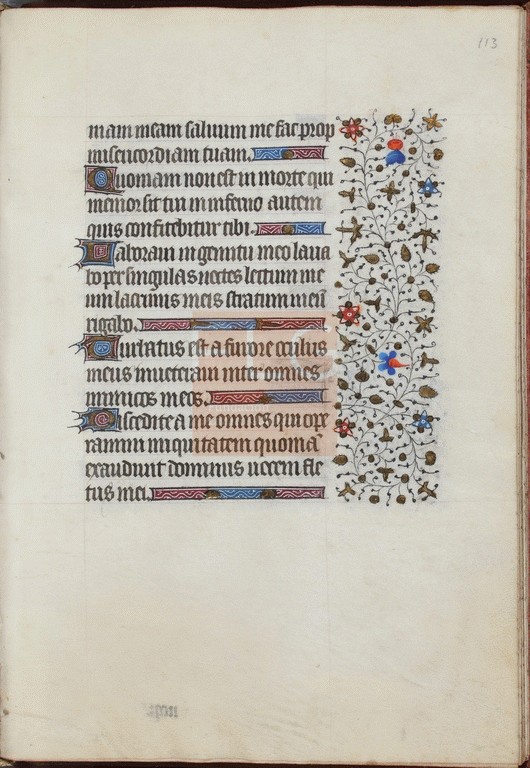 113
mam meam saluum me fac prop
misericordiam tuam.
Quoniam non est in morte qui
memor sit tui in inferno autem
quis confitebitur tibi.
Laboraui in gemitu meo laua
bo per singulas noctes lectum me
um lacrimis meis stratum meū
rigabo.
Turbatus est a furore oculus
meus inueteraui inter omnes
inimicos meos.
Discedite a me omnes qui ope
ramini iniquitatem quoniā
exaudiuit dominus uocem fle
tus mei.